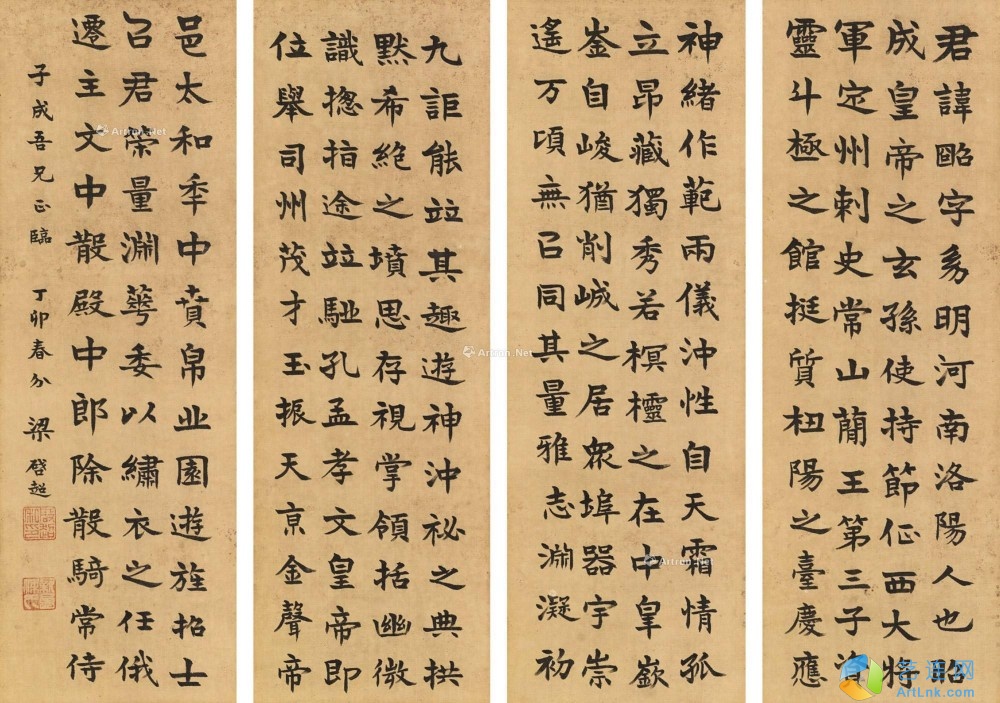 君諱昭字㓜明河南洛陽人也昭
成皇帝之玄孫使持節征西大將
軍定州刺史常山蕳王第三子資
靈斗極之館挺質杻陽之臺慶應
神緒作範兩儀沖性自天霜情孤
立昂藏獨秀若榠櫺之在中皋嶽
崟自峻猶削峸之居衆埠器宇崇
遙万頃無㠯同其量雅志淵凝初
九詎能竝其趣遊神沖祕之典拱
默希絶之墳思存視掌領括幽微
識揔指途竝馳孔孟孝文皇帝即
位舉司州茂才玉振天京金聲帝
邑太和年中賁帛丘園遊旌招士
㠯君榮量淵華委以繡衣之任俄
遷主文中散殿中郎除散騎常侍
子成吾兄正臨 丁卯春分 梁啓超
Artron.Net
Artron.Net
Artron.Net
艺连网
ArtLnk.com